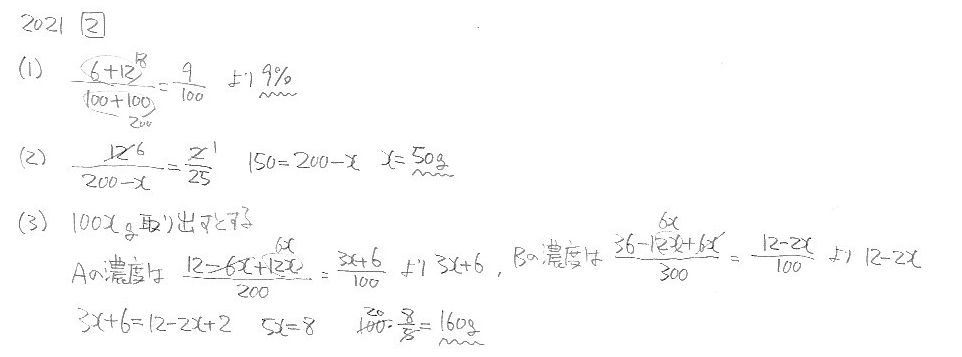 2021 2
(1) (6+12)/(100+100) = 9/100 より 9%
18
200
(2) 12/(200-x) = 2/25 150=200-x x=50g
6 1
(3) 100xg取り出すとする
Aの濃度は (12-6x+12x)/200 = (3x+6)/100 より 3x+6 , Bの濃度は (36-12x+6x)/300 = (12-2x)/100 より 12-2x
6x 6x
3x+6=12-2x+2 5x=8 100・8/5=160g
20